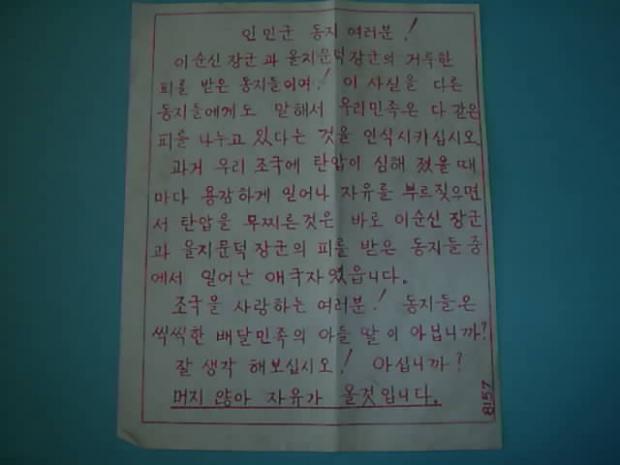 인민군 동지 여러분!
이순신 장군과 을지문덕 장군의 거룩한
피를 받은 동지들이여! 이 사실을 다른
동지들에게도 말해서 우리민족은 다 같은
피를 나누고 있다는 것을 인식시카십시오.
과거 우리 조국에 탄압이 심해 졌을 때
마다 용감하게 일어나 자유를 부르짖으면
서 탄압을 무찌른것은 바로 이순신 장군
과 을지문덕 장군의 피를 받은 동지들 중
에서 일어난 애국자였읍니다.
조국을 사랑하는 여러분! 동지들은
씩씩한 배달민족의 아들 딸이 아닙니까?
잘 생각 해보십시오! 아십니까?
머지 않아 자유가 올것입니다.
8157